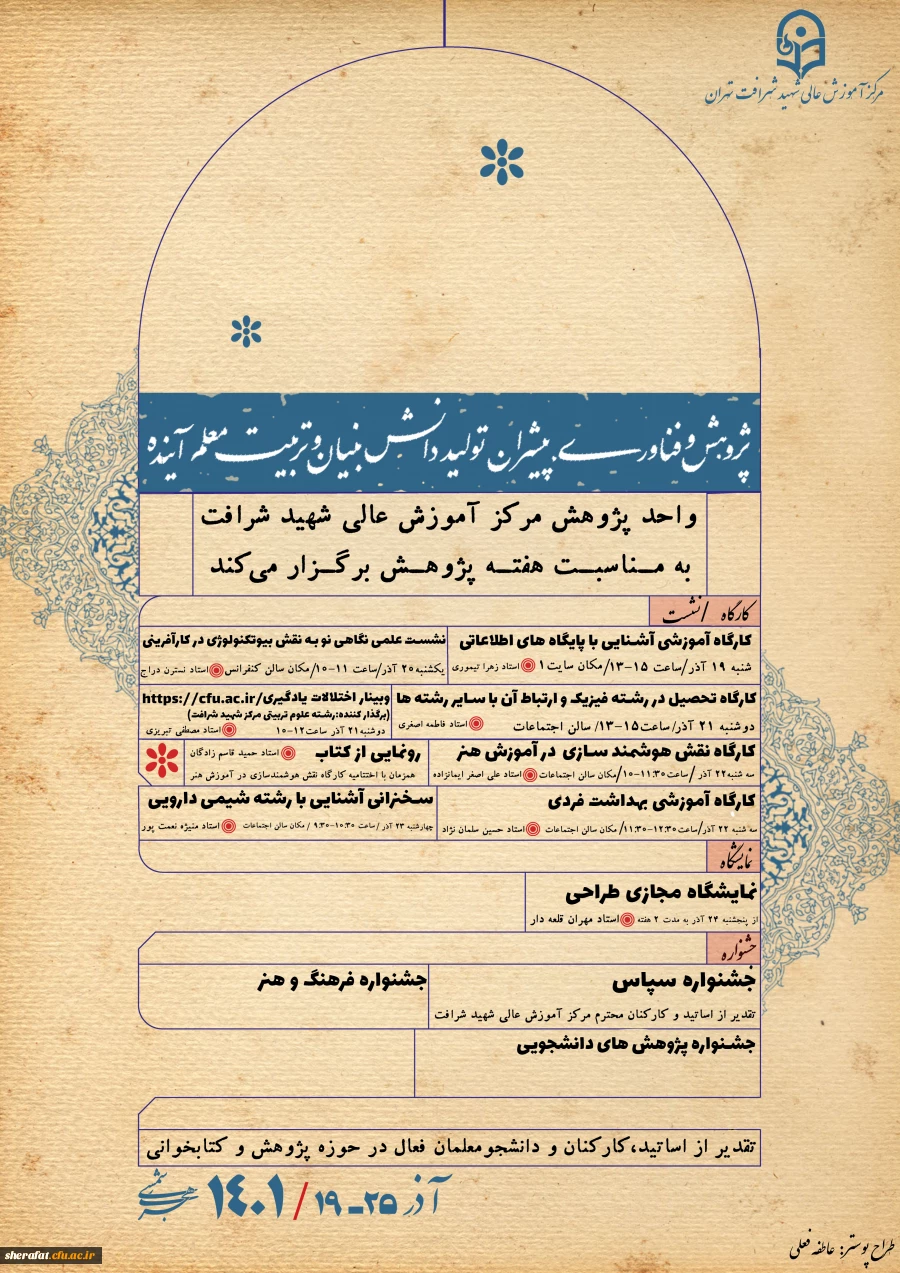 مرکز آموزش عالی شهید شرافت تهران
پژوهش و فناوری، پیشران تولید دانش بنیان و تربیت معلم آینده
واحد پژوهش مرکز آموزش عالی شهید شرافت
به مناسبت هفته پژوهش برگزار می‌کند
کارگاه / نشست
کارگاه آموزشی آشنایی با پایگاه های اطلاعاتی
شنبه ۱۹ آذر/ساعت ۱۵-۱۳/مکان سایت۱ استاد زهرا تیموری
نشست علمی نگاهی نو به نقش بیوتکنولوژی در کارآفرینی
یکشنبه۲۰ آذر/ساعت ۱۱-۱۰/مکان سالن کنفرانس استاد نسترن دراج
کارگاه تحصیل در رشته فیزیک و ارتباط آن با سایر رشته ها
دوشنبه ۲۱ آذر/ساعت۱۵-۱۳/ سالن اجتماعات استاد فاطمه اصغری
وبینار اختلالات یادگیری/https://cfu.ac.ir
(برگذار کننده:رشته علوم تربیتی مرکز شهید شرافت)
دوشنبه۲۱ آذر ساعت۱۲-۱۰ استاد مصطفی تبریزی
کارگاه نقش هوشمند سازی در آموزش هنر
سه شنبه۲۲ آذر /ساعت۱۱:۳۰-۱۰/مکان سالن اجتماعات استاد علی اصغر ایمانزاده
رونمایی از کتاب استاد حمید قاسم زادگان
همزمان با اختتامیه کارگاه نقش هوشمندسازی در آموزش هنر
کارگاه آموزشی بهداشت فردی
سه شنبه ۲۲ آذر/ساعت۱۲:۳۰-۱۱:۳۰/مکان سالن اجتماعات استاد حسین سلمان نژاد
سخنرانی آشنایی با رشته شیمی دارویی
چهارشنبه ۲۳ آذر /ساعت ۱۰:۳۰-۹:۳۰ / مکان سالن اجتماعات استاد منیژه نعمت پور
نمایشگاه
نمایشگاه مجازی طراحی
از پنجشنبه ۲۴ آذر به مدت ۲ هفته استاد مهران قلعه دار
جشنواره
جشنواره سپاس
تقدیر از اساتید و کارکنان محترم مرکز آموزش عالی شهید شرافت
جشنواره فرهنگ و هنر
جشنواره پژوهش های دانشجویی
تقدیر از اساتید،کارکنان و دانشجومعلمان فعال در حوزه پژوهش و کتابخوانی
آذر ۲۵ـ۱۹ / ۱۴۰۱ هجری شمسی
طراح پوستر: عاطفه فعلی
sherafat.cfu.ac.ir